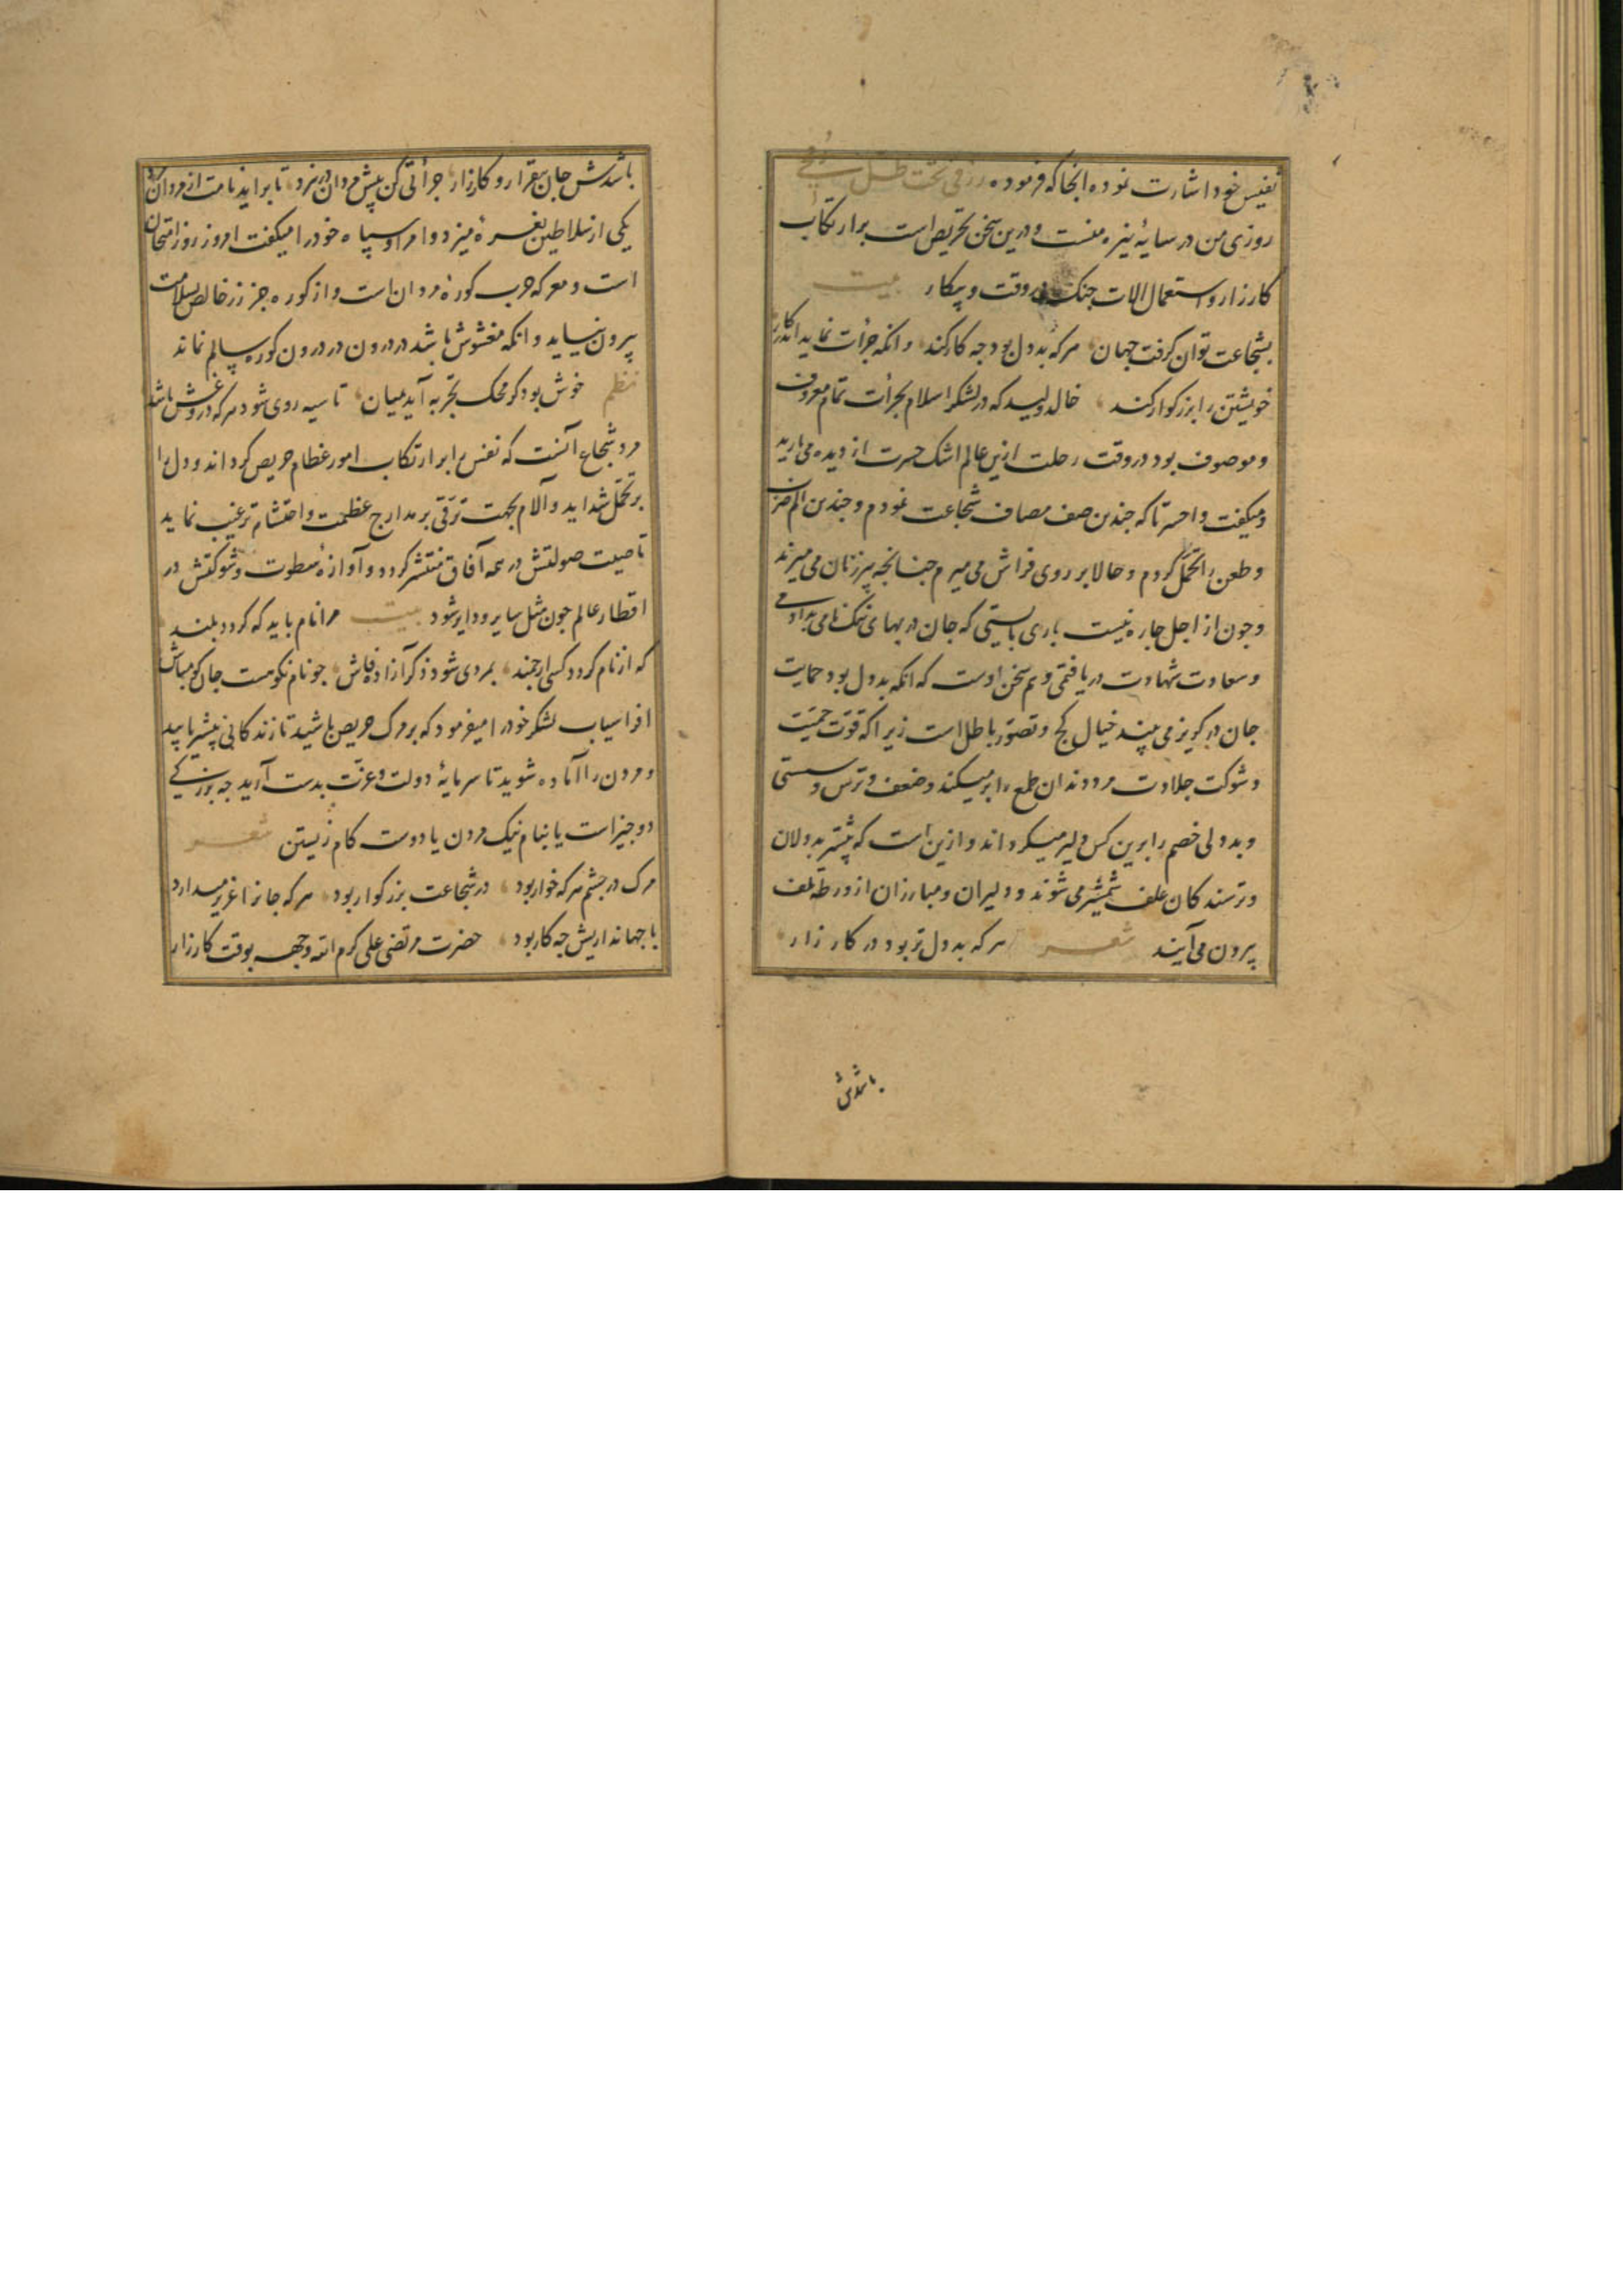 نفیس خود اشارت نموده انجا که فرموده رزقی تحت ظل رمحی
روزی من در سایهٔ نیزه منست و درین سخن تحریص است بر ارتکاب
کارزار و استعمال الات جنک در وقت و پیکار بیت
بشجاعت توان کرفت جهان مرکه بددل بود چه کار کند وانکه جرأت نماید اندر کار
خویشتن را بزرکوار کند خالد ولید که در لشکر اسلام بجرأت تمام معروف
و موصوف بود در وقت رحلت ازین عالم اشک حسرت از دیده می بارید
و میکفت واحسرتا که چندین صف مصاف شجاعت نمودم و چندین الم ضرب
و طعن را تحمّل کردم و حالا بر روی فراش می میرم چنانچه پیرزنان می میرند
و چون از اجل چاره نیست باری بایستی که جان در بهای نیک نامی بدادمی
و سعادت شهادت دریافتمی و هم سخن اوست که انکه بددل بود حمایت
جان در کریز می بیند خیال کج و تصوّر باطل است زیرا که قوّت حمیّت
و شوکت جلادت مرد دندان طمع را بر میکند و ضعف و ترس و سستی
و بددلی خصم را برین کس دلیر میکرداند و ازین است که بیشتر بددلان
و ترسندکان علف شمشیر می شوند و دلیران و مبارزان از ورطهٔ تلف
بیرون می آیند شعر هر که بددل تر بود در کارزار
باشدش
باشدش جان بیقرار و کارزار جرأتی کن پیش مردان در نبرد تا برآید نامت از مردان مرد
یکی از سلاطین بغزوه میرفت و امرا و سپاه خود را میکفت امروز روز امتحان
است و معرکه حرب کورهٔ مردان است و از کوره جز زر خالص بسلامت
بیرون نیاید وانکه مغشوش باشد در درون در درون کوره سالم نماند
نظم خوش بود کر محک تجربه آید میان تا سیه روی شود هرکه دروغش باشد
مرد شجاع آنست که نفس را بر ارتکاب امور عظام حریص کرداند و دل را
بر تحمّل شداید و آلام بجهت ترقی بر مدارج عظمت و احتشام ترغیب نماید
تا صیت صولتش در همه آفاق منتشر کردد و آوازهٔ سطوت و شوکتش در
اقطار عالم چون مثل سایر و دایر شود بیت مرا نام باید که کردد بلند
که از نام کردد کسی ارجمند بمردی شود ذکر آزاده فاش چو نام نکو هست جان کو مباش
افراسیاب لشکر خود را میفرمود که بر مرک حریص باشید تا زندکانی بیشتر یابید
و مردن را آماده شوید تا سرمایهٔ دولت و عزّت بدست آرید چه بزرکی
دو چیز است یا بنام نیک مردن یا دوست کام زیستن شعر
مرک در چشم هرکه خوار بود در شجاعت بزرکوار بود هرکه جانرا عزیز میدارد
با جهانداریش چه کار بود حضرت مرتضی علی کرم الله وجهه بوقت کارزار